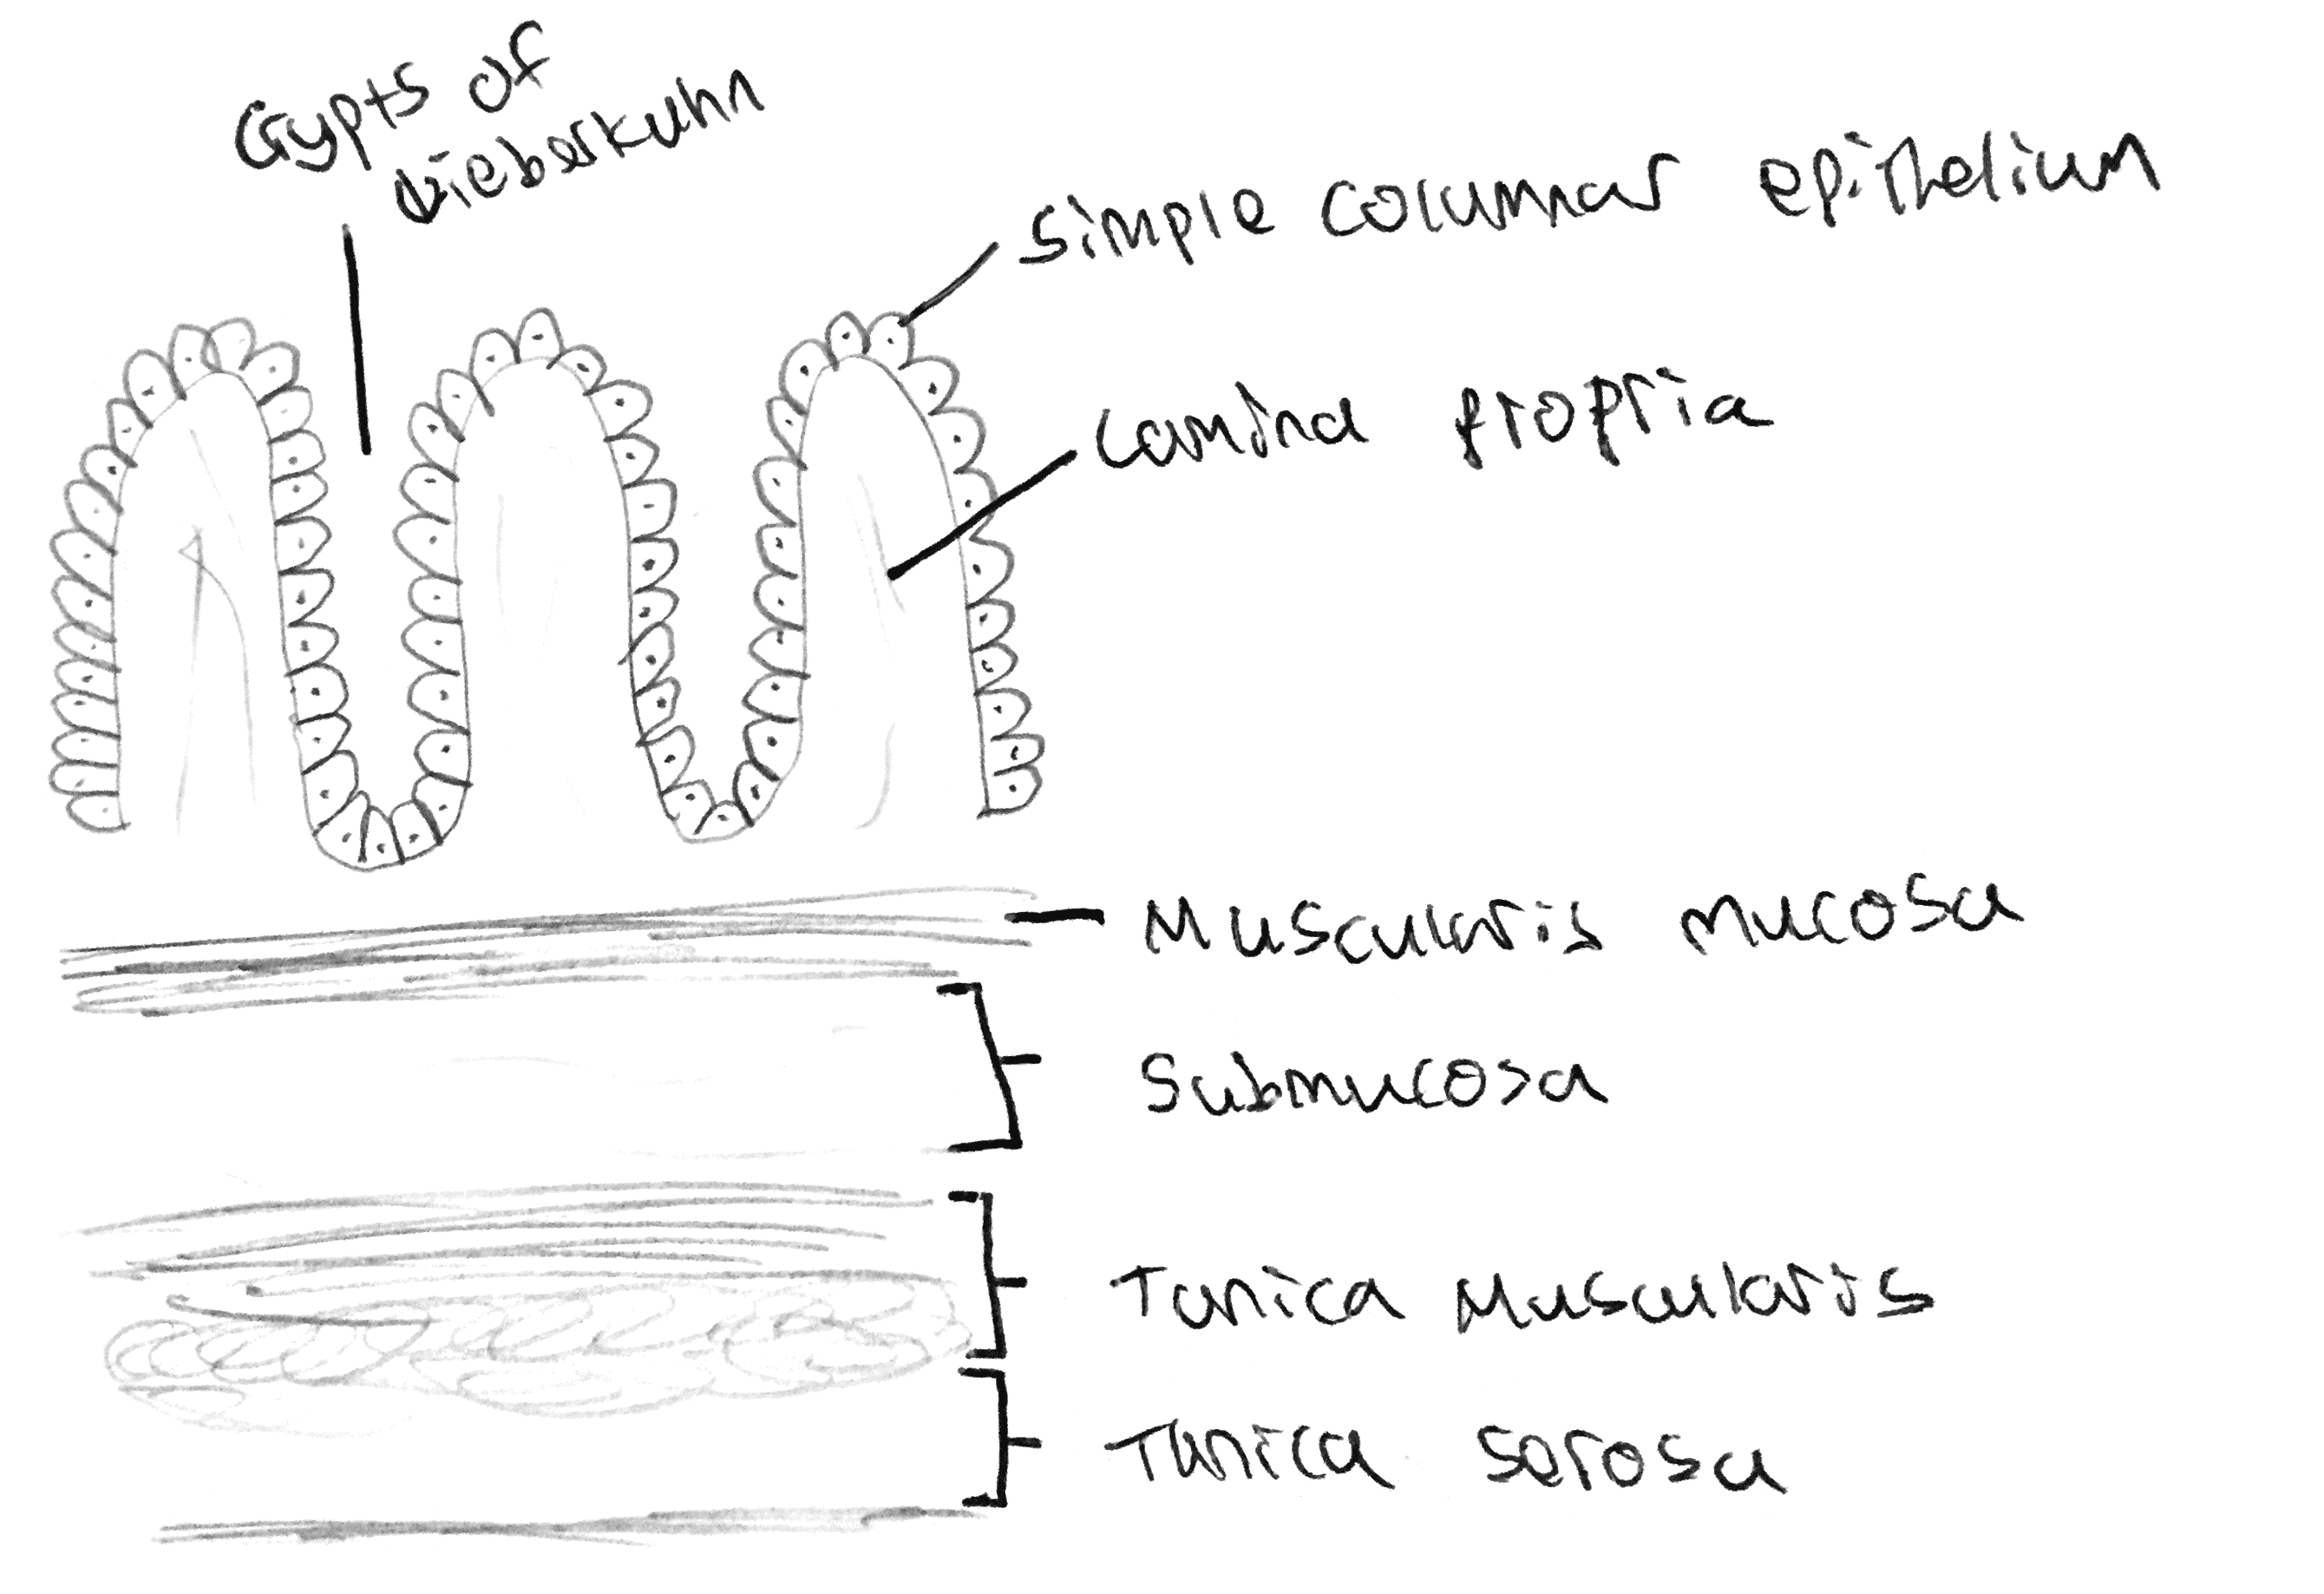 Crypts of
Lieberkuhn
Simple columnar epithelium
Lamina propria
Muscularis mucosa
Submucosa
Tunica Muscularis
Tunica serosa